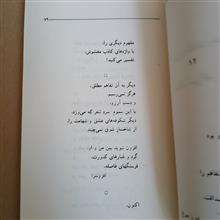 ۷۹
مفهوم دیگری را،
با واژه‌های کاذب مغشوش،
تفسیر می‌کنید!
○
دیگر به آن تفاهم مطلق،
هرگز نمی‌رسیم.
و دست آرزو،
با این سموم سرد تنفر که می‌وزد،
دیگر شکوفه‌های عشق و شهامت را،
از شاخسار شوق نمی‌چیند
○
افزون شوید بین من و او،
گرد و غبارهای کدورت.
فرسنگهای فاصله،
افزونتر!
○
اکنون،
۹۲
بود